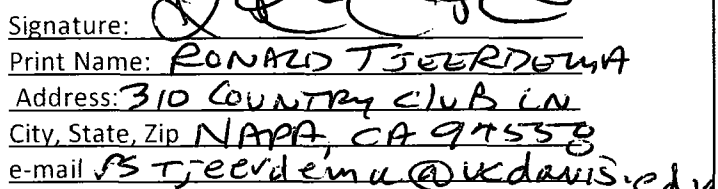 Signature:
Print Name: RONALD TJEERDEMA
Address: 310 COUNTRY CLUB LN
City, State, Zip NAPA, CA 94558
e-mail rstjeerdema@ucdavis.edu